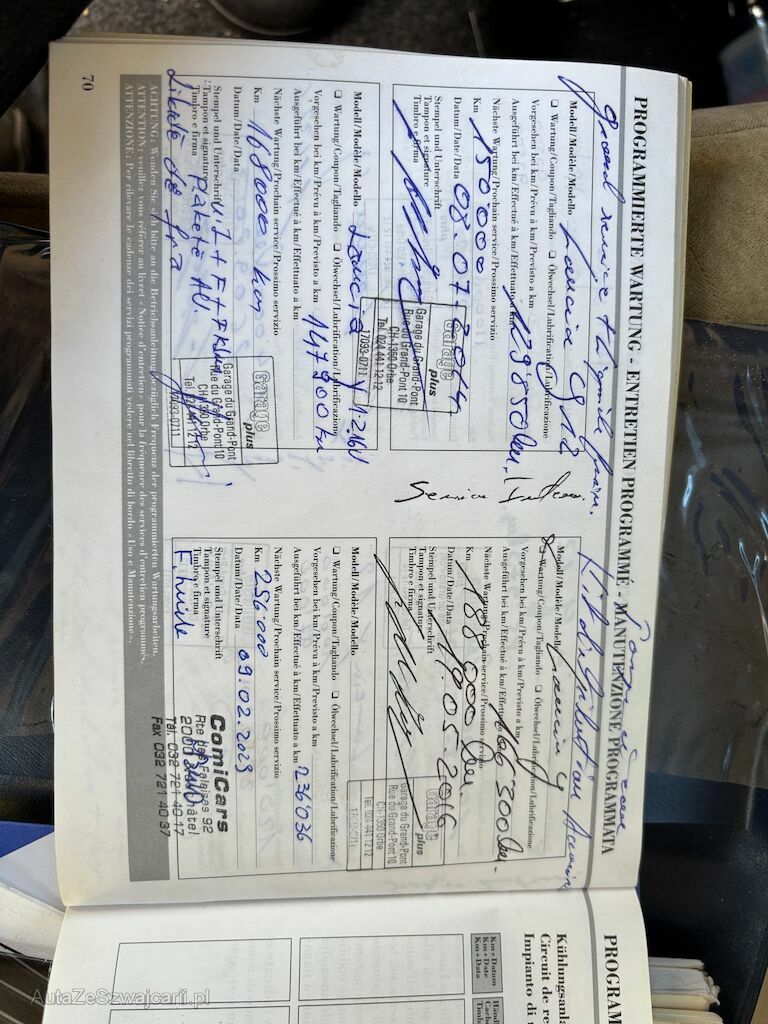 PROGRAMMIERTE WARTUNG - ENTRETIEN PROGRAMMÉ - MANUTENZIONE PROGRAMMATA
Grand service +
Modell/Modèle/Modello Lancia
❏ Wartung/Coupon/Tagliando ❏ Ölwechsel/Lubrification/Lubrificazione
Vorgesehen bei km/Prévu à km/Previsto a km
Ausgeführt bei km/Effectué à km/Effettuato a km 129'850 km
Nächste Wartung/Prochain service/Prossimo servizio
Km 150'000
Datum/Date/Data 08.07.2014
Stempel und Unterschrift
Tampon et signature
Timbro e firma
Garage plus
Garage du Grand-Pont
Rue du Grand-Pont 10
CH-1350 Orbe
Tel. 024 441 12 12
17093-0711
Modell/Modèle/Modello Lancia Y 1.2 16V
❏ Wartung/Coupon/Tagliando ❏ Ölwechsel/Lubrification/Lubrificazione
Vorgesehen bei km/Prévu à km/Previsto a km
Ausgeführt bei km/Effectué à km/Effettuato a km 147'900 km
Nächste Wartung/Prochain service/Prossimo servizio
Km 168000 km
Datum/Date/Data
Stempel und Unterschrift
Tampon et signature
Timbro e firma
Garage plus
Garage du Grand-Pont
Rue du Grand-Pont 10
CH-1350 Orbe
Tel. 024 441 12 12
17093-0711
Service
Kit distribution
Modell/Modèle/Modello Lancia Y
❏ Wartung/Coupon/Tagliando ❏ Ölwechsel/Lubrification/Lubrificazione
Vorgesehen bei km/Prévu à km/Previsto a km
Ausgeführt bei km/Effectué à km/Effettuato a km 166'300 km
Nächste Wartung/Prochain service/Prossimo servizio
Km 188'000 km
Datum/Date/Data 05.2016
Stempel und Unterschrift
Tampon et signature
Timbro e firma
Garage plus
Garage du Grand-Pont
Rue du Grand-Pont 10
CH-1350 Orbe
Tel. 024 441 12 12
Modell/Modèle/Modello
❏ Wartung/Coupon/Tagliando ❏ Ölwechsel/Lubrification/Lubrificazione
Vorgesehen bei km/Prévu à km/Previsto a km
Ausgeführt bei km/Effectué à km/Effettuato a km 236036
Nächste Wartung/Prochain service/Prossimo servizio
Km 256'000
Datum/Date/Data 09.02.2023
Stempel und Unterschrift
Tampon et signature
Timbro e firma
F. huile
ComiCars
Rte des Falaises 92
2000 Neuchâtel
Tél. 032 721 40 17
Fax 032 721 40 37
ACHTUNG: Wenden Sie sich bitte an die Betriebsanleitung bezüglich Frequenz der programmierten Wartungsarbeiten.
ATTENTION: veuillez vous référer au livret «Notice d'entretien» pour la fréquence des services d'entretien programmés.
ATTENZIONE: Per rilevare le cadenze dei servizi programmati vedere nel libretto di bordo «Uso e Manutenzione».
70
PROGR
Kühlungsanla
Circuit de re
Impianto di r
Km+Datum
Km+Date
Km+Data
Händl
Cache
Timb
AutaZeSzwajcarii.pl